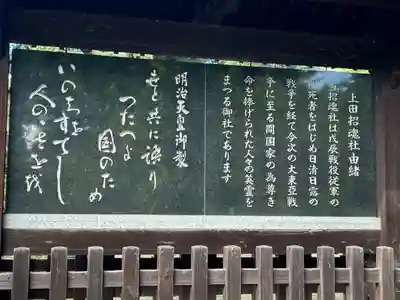 上田招魂社由緒
当招魂社は戊辰戦役従軍の
戦死者をはじめ日清日露の
戦争を経て今次の大東亜戦
争に至る間国家の為尊き
命を捧げられた人々の英霊を
まつる御社であります
明治天皇御製
世と共に語り
つたへよ
国のため
いのちをすてし
人のいさをを